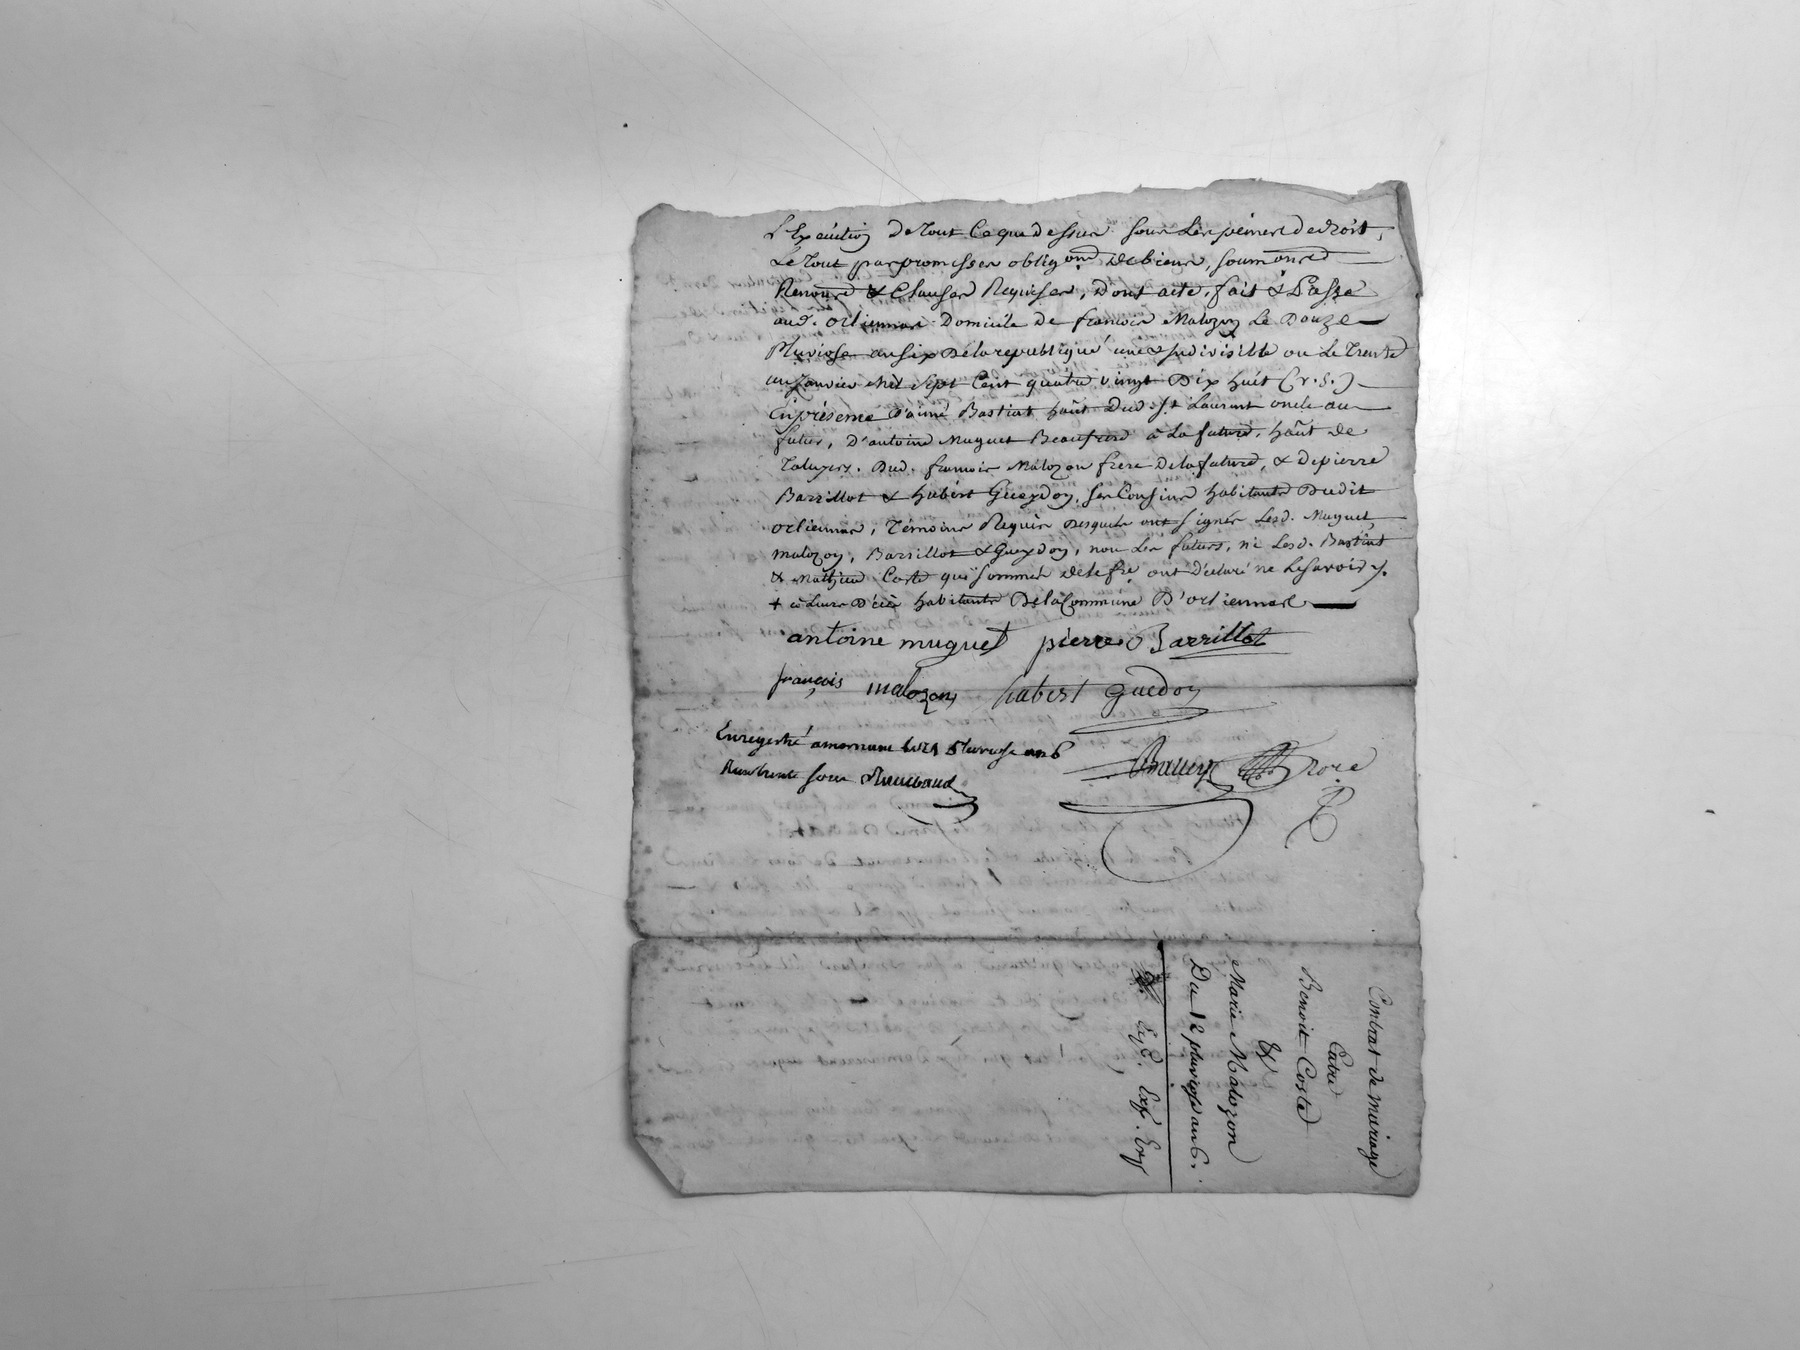 L'Exécution de tout Ce que dessus sous les peines de droit,
Le tout par promesses obligaons de biens, soumons
Renonns & Clauses Requises, Dont acte, fait & Passé
aud. orliennas Domicile de francois Malozon Le Douze
Pluviose an six De la republique une & Indivisible ou Le Trente
un Janvier Mil Sept Cent quatre vingt Dix huit (v. s.)
En présence d'aimé Bastiat habt Dud. St Laurent oncle au
futur, D'antoine Muguet Beaufrere à La future, habt de
Taluyers. Dud. francois Malozon frere De la future, & de pierre
Barrillot & hubert Gueydon, ses Cousins habitants Dudit
orliennas, Témoins Requis Desquels ont signés Lesd. Muguet,
malozon, Barrillot & Gueydon, non Les futurs, ni Lesd. Bastiat
& Mathieu Coste qui sommés de le fre ont déclaré ne le savoir
+ à Leurs Décès habitants De la Commune D'orliennas
antoine muguet pierre Barrillot
françois malozon hubert guedon
Enregistré a mornant Le 21 Pluviose an 6
sous
Nore
Contrat de mariage
Entre
Benoit Coste
&
Marie Malozon
Du 12 pluviose an 6.
Exp.